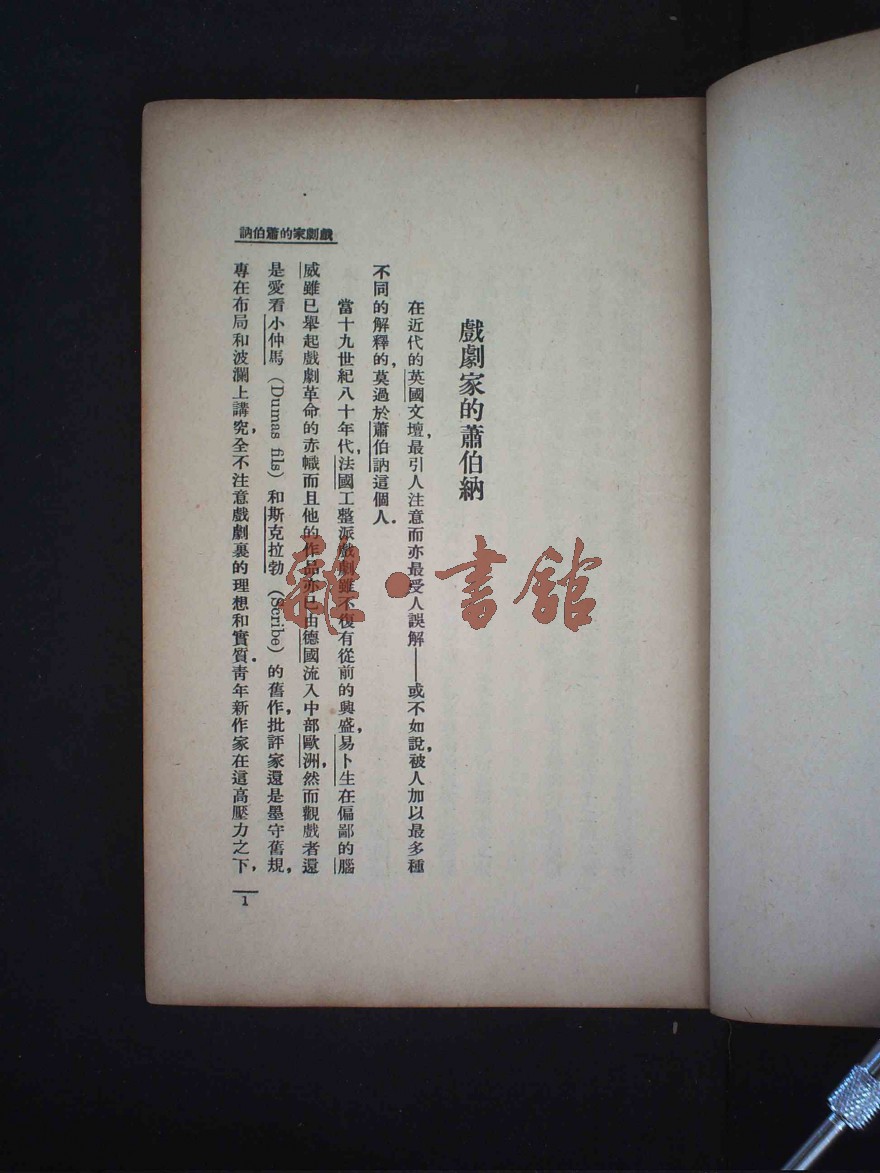 訥伯蕭的家劇戲
戲劇家的蕭伯納
在近代的英國文壇，最引人注意而亦最受人誤解——或不如說，被人加以最多種
不同的解釋的，莫過於蕭伯訥這個人．
當十九世紀八十年代，法國工整派戲劇雖不復有從前的興盛，易卜生在偏鄙的腦
威雖已舉起戲劇革命的赤幟而且他的作品亦已由德國流入中部歐洲，然而觀戲者還
是愛看小仲馬（Dumas fils）和斯克拉勃（Scribe）的舊作，批評家還是墨守舊規，
專在布局和波瀾上講究，全不注意戲劇裏的理想和實質．靑年新作家在這高壓力之下，
1
雜·書館